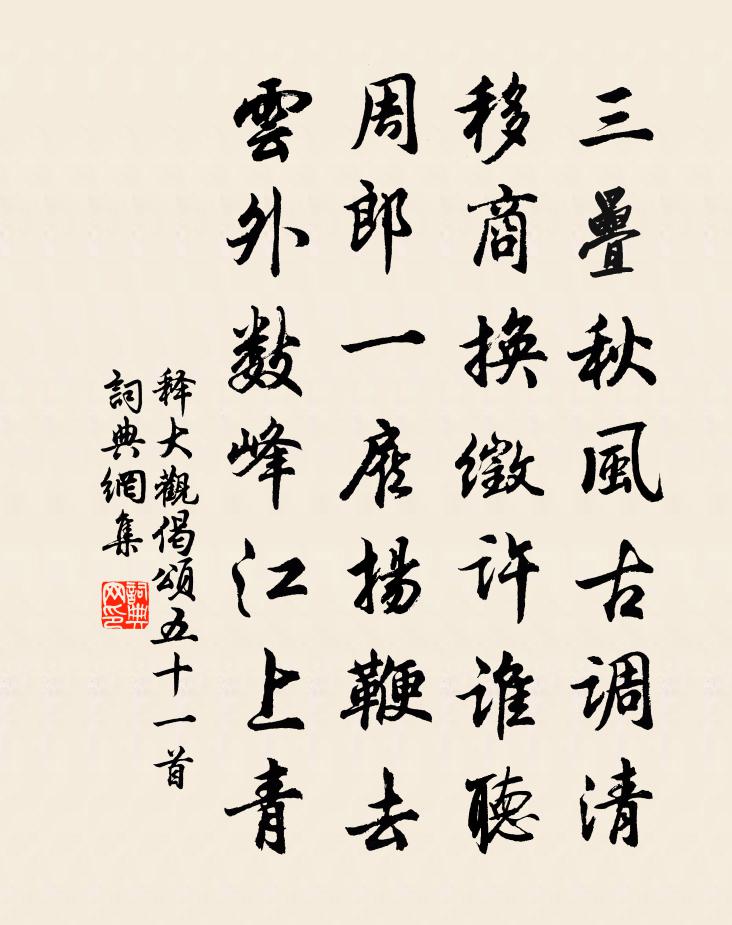 三疊秋風古調清
移商換徵許誰聽
周郎一顧揚鞭去
雲外数峰江上青
释大觀偈頌五十一首
詞典網集
詞典网印